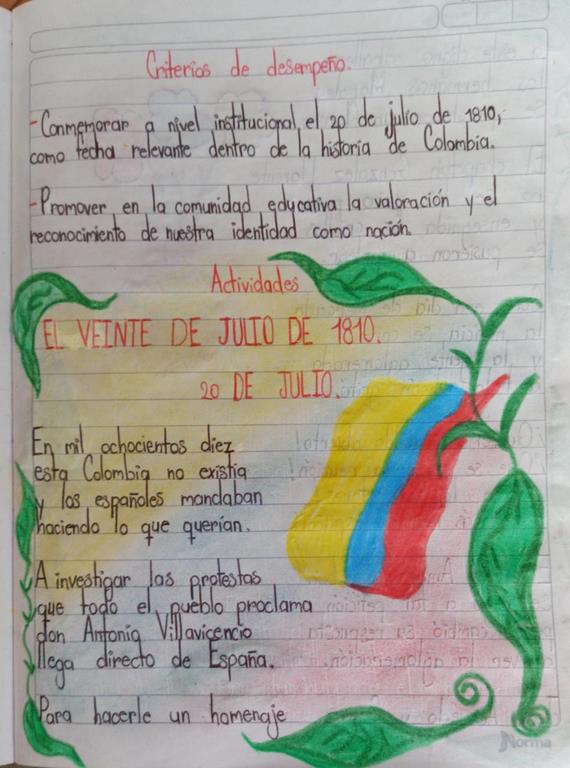 Criterios de desempeño.
-Conmemorar a nivel institucional, el 20 de julio de 1810,
como fecha relevante dentro de la historia de Colombia.
-Promover en la comunidad educativa la valoración y el
reconocimiento de nuestra identidad como nación.
Actividades
EL VEINTE DE JULIO DE 1810.
20 DE JULIO.
En mil ochocientos diez
esta Colombia no existía
y los españoles mandaban
haciendo lo que querían.
A investigar las protestas
que todo el pueblo proclama
don Antonio Villavicencio
llega directo de España.
Para hacerle un homenaje
Norma